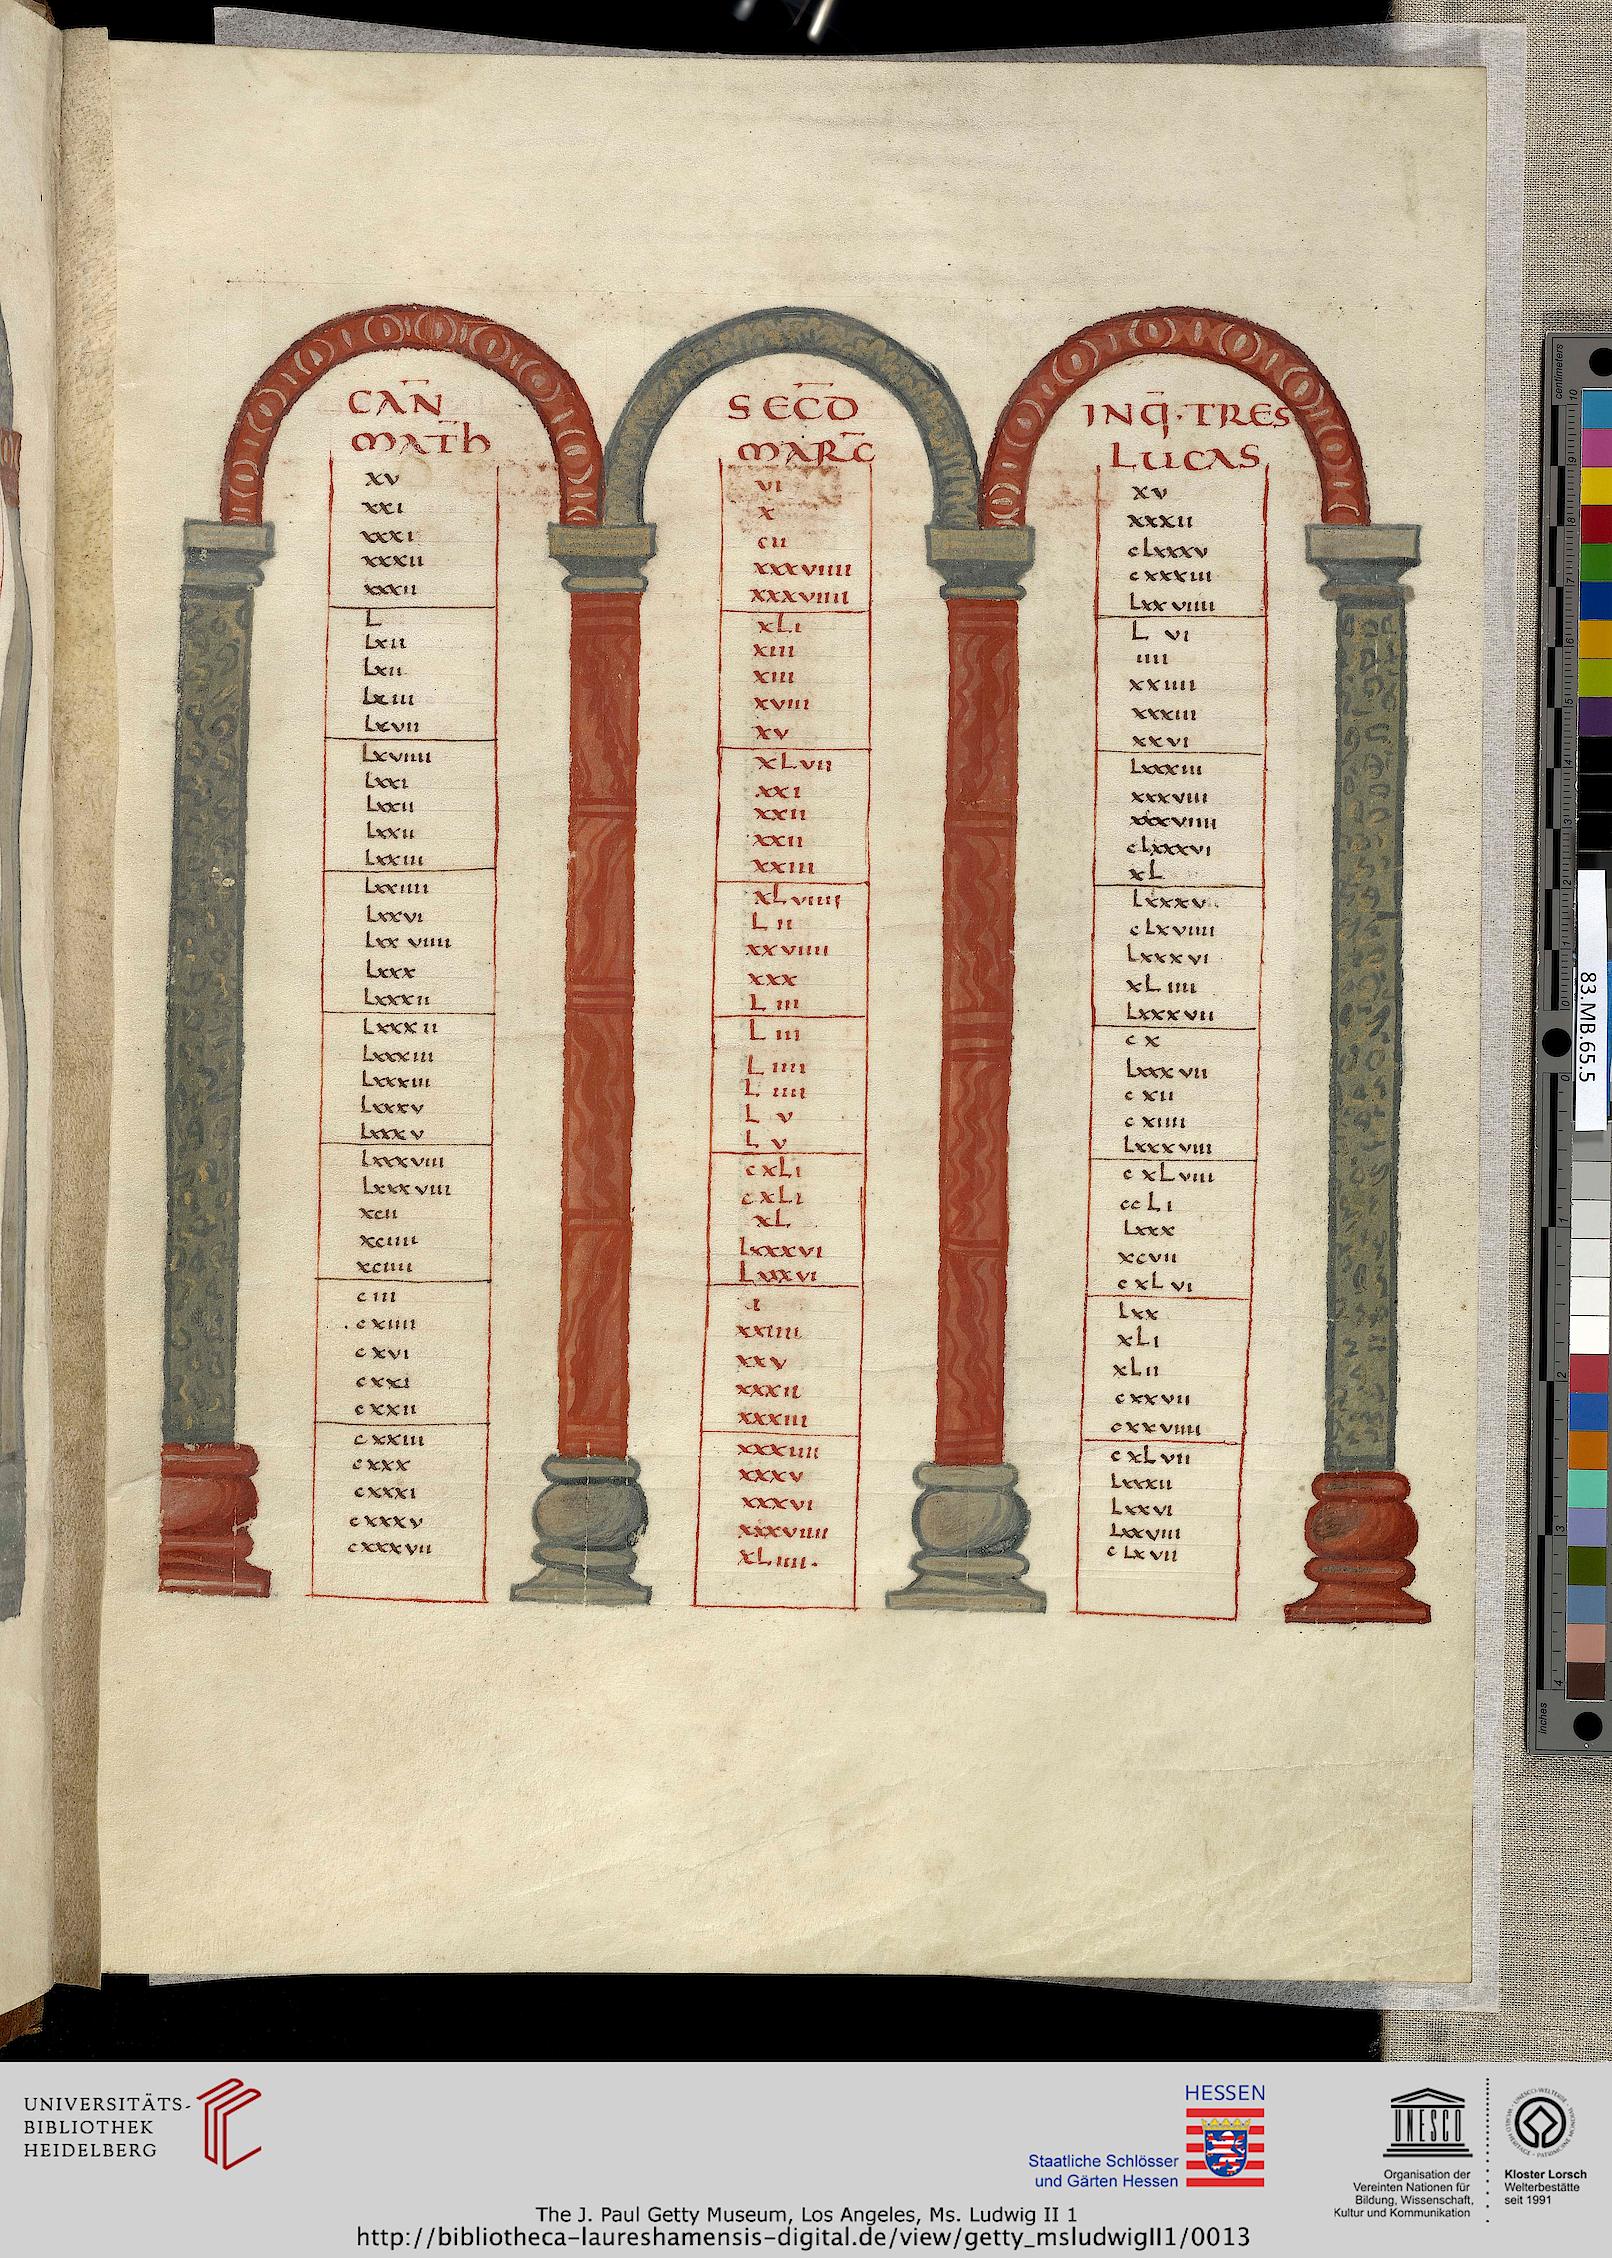 CAN̅
MATH̅
XV
XXI
XXXI
XXXII
XXXII
L
LXII
LXII
LXIII
LXVII
LXVIIII
LXXI
LXXII
LXXII
LXXIII
LXXIIII
LXXVI
LXXVIIII
LXXX
LXXXII
LXXXII
LXXXIII
LXXXIII
LXXXV
LXXXV
LXXXVIII
LXXXVIII
XCII
XCIIII
XCIIII
CIII
CXIIII
CXVI
CXXI
CXXII
CXXIII
CXXX
CXXXI
CXXXV
CXXXVII
SEC̅D
MARC̅
VI
X
CII
XXXVIIII
XXXVIIII
XLI
XIII
XIII
XVIII
XV
XLVII
XXI
XXII
XXII
XXIII
XLVIIII
L II
XXVIIII
XXX
L III
L III
L IIII
L IIII
L V
L V
CXLI
CXLI
XL
LXXXVI
LXXXVI
I
XXIIII
XXV
XXXII
XXXIII
XXXIIII
XXXV
XXXVI
XXXVIIII
XLIIII.
INQ̅·TRES
LUCAS
XV
XXXII
CLXXXV
CXXXIII
LXXVIIII
L VI
IIII
XXIIII
XXXIII
XXVI
LXXXIII
XXXVIII
XXXVIIII
CLXXXVI
XL
LXXXV
CLXVIIII
LXXXVI
XLIIII
LXXXVII
CX
LXXXVII
CXII
CXIIII
LXXXVIII
CXLVIII
CCLI
LXXX
XCVII
CXLVI
LXX
XLI
XLII
CXXVII
CXXVIIII
CXLVII
LXXXII
LXXVI
LXXVIII
CLXVII
centimeters
inches
83.MB.65.5
UNIVERSITÄTS-
BIBLIOTHEK
HEIDELBERG
HESSEN
Staatliche Schlösser
und Gärten Hessen
UNESCO
Organisation der
Vereinten Nationen für
Bildung, Wissenschaft,
Kultur und Kommunikation
Kloster Lorsch
Welterbestätte
seit 1991
The J. Paul Getty Museum, Los Angeles, Ms. Ludwig II 1
http://bibliotheca-laureshamensis-digital.de/view/getty_msludwigII1/0013